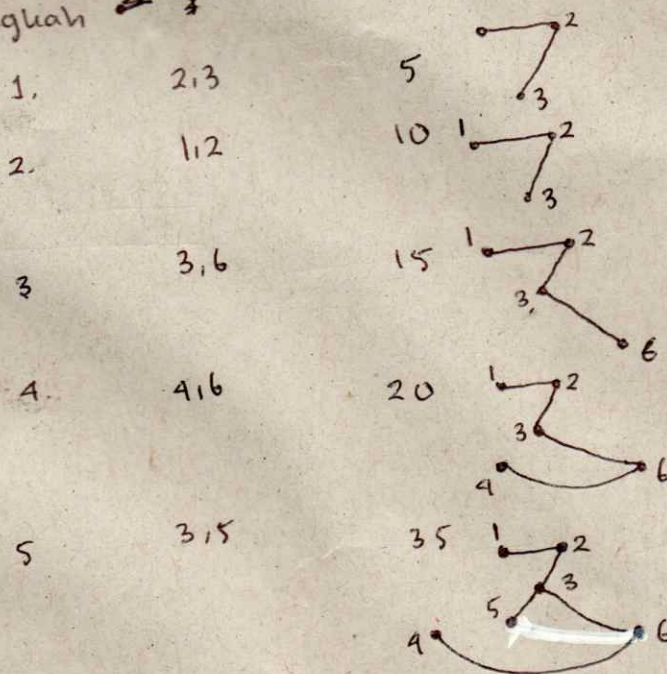 1. 2,3 5 2
3
2. 1,2 10 1 2
3
3 3,6 15 1 2
3
6
4. 4,6 20 1 2
3
4 6
5 3,5 35 1 2
3
5
4 6